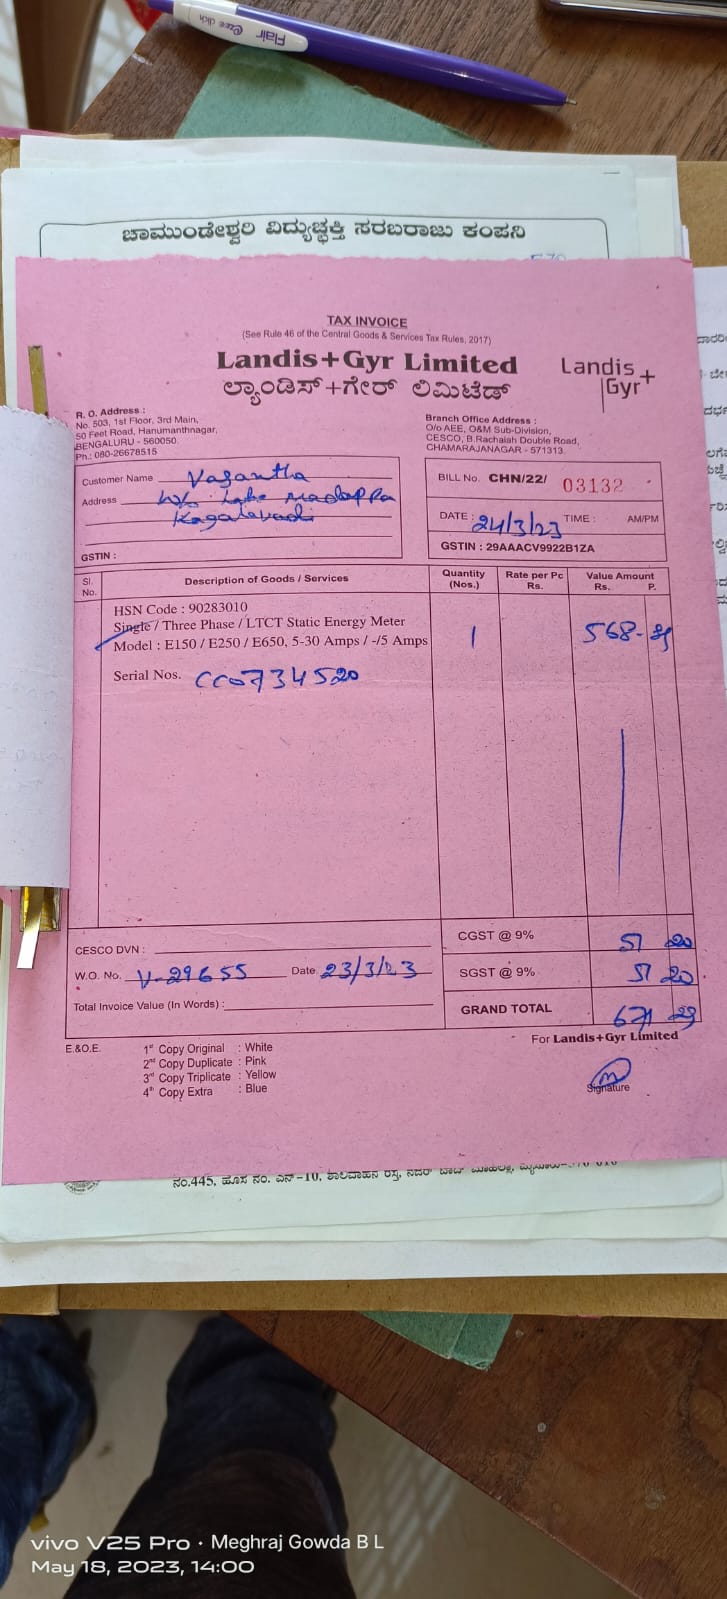 Flair Ezee click
ಚಾಮುಂಡೇಶ್ವರಿ ವಿದ್ಯುಚ್ಛಕ್ತಿ ಸರಬರಾಜು ಕಂಪನಿ
TAX INVOICE
(See Rule 46 of the Central Goods & Services Tax Rules, 2017)
Landis+Gyr Limited
Landis+
Gyr
ಲ್ಯಾಂಡಿಸ್+ಗೇರ್ ಲಿಮಿಟೆಡ್
R. O. Address :
No. 503, 1st Floor, 3rd Main,
50 Feet Road, Hanumanthnagar,
BENGALURU - 560050.
Ph.: 080-26678515
Branch Office Address :
O/o AEE, O&M Sub-Division,
CESCO, B.Rachaiah Double Road,
CHAMARAJANAGAR - 571313.
Customer Name Vasantha
Address W/o Late Madappa
Kagalavadi
GSTIN :
BILL No. CHN/22/ 03132
DATE : 24/3/23 TIME : AM/PM
GSTIN : 29AAACV9922B1ZA
Sl. No. Description of Goods / Services Quantity (Nos.) Rate per Pc Rs. Value Amount Rs. P.
HSN Code : 90283010
Single / Three Phase / LTCT Static Energy Meter
Model : E150 / E250 / E650, 5-30 Amps / -/5 Amps 1 568-
Serial Nos. CC0734520
CGST @ 9% 51 20
CESCO DVN :
W.O. No. V-29655 Date 23/3/23
SGST @ 9% 51 20
Total Invoice Value (In Words) :
GRAND TOTAL 671 29
For Landis+Gyr Limited
E.&O.E.
1st Copy Original : White
2nd Copy Duplicate : Pink
3rd Copy Triplicate : Yellow
4th Copy Extra : Blue
Signature
vivo V25 Pro · Meghraj Gowda B L
May 18, 2023, 14:00